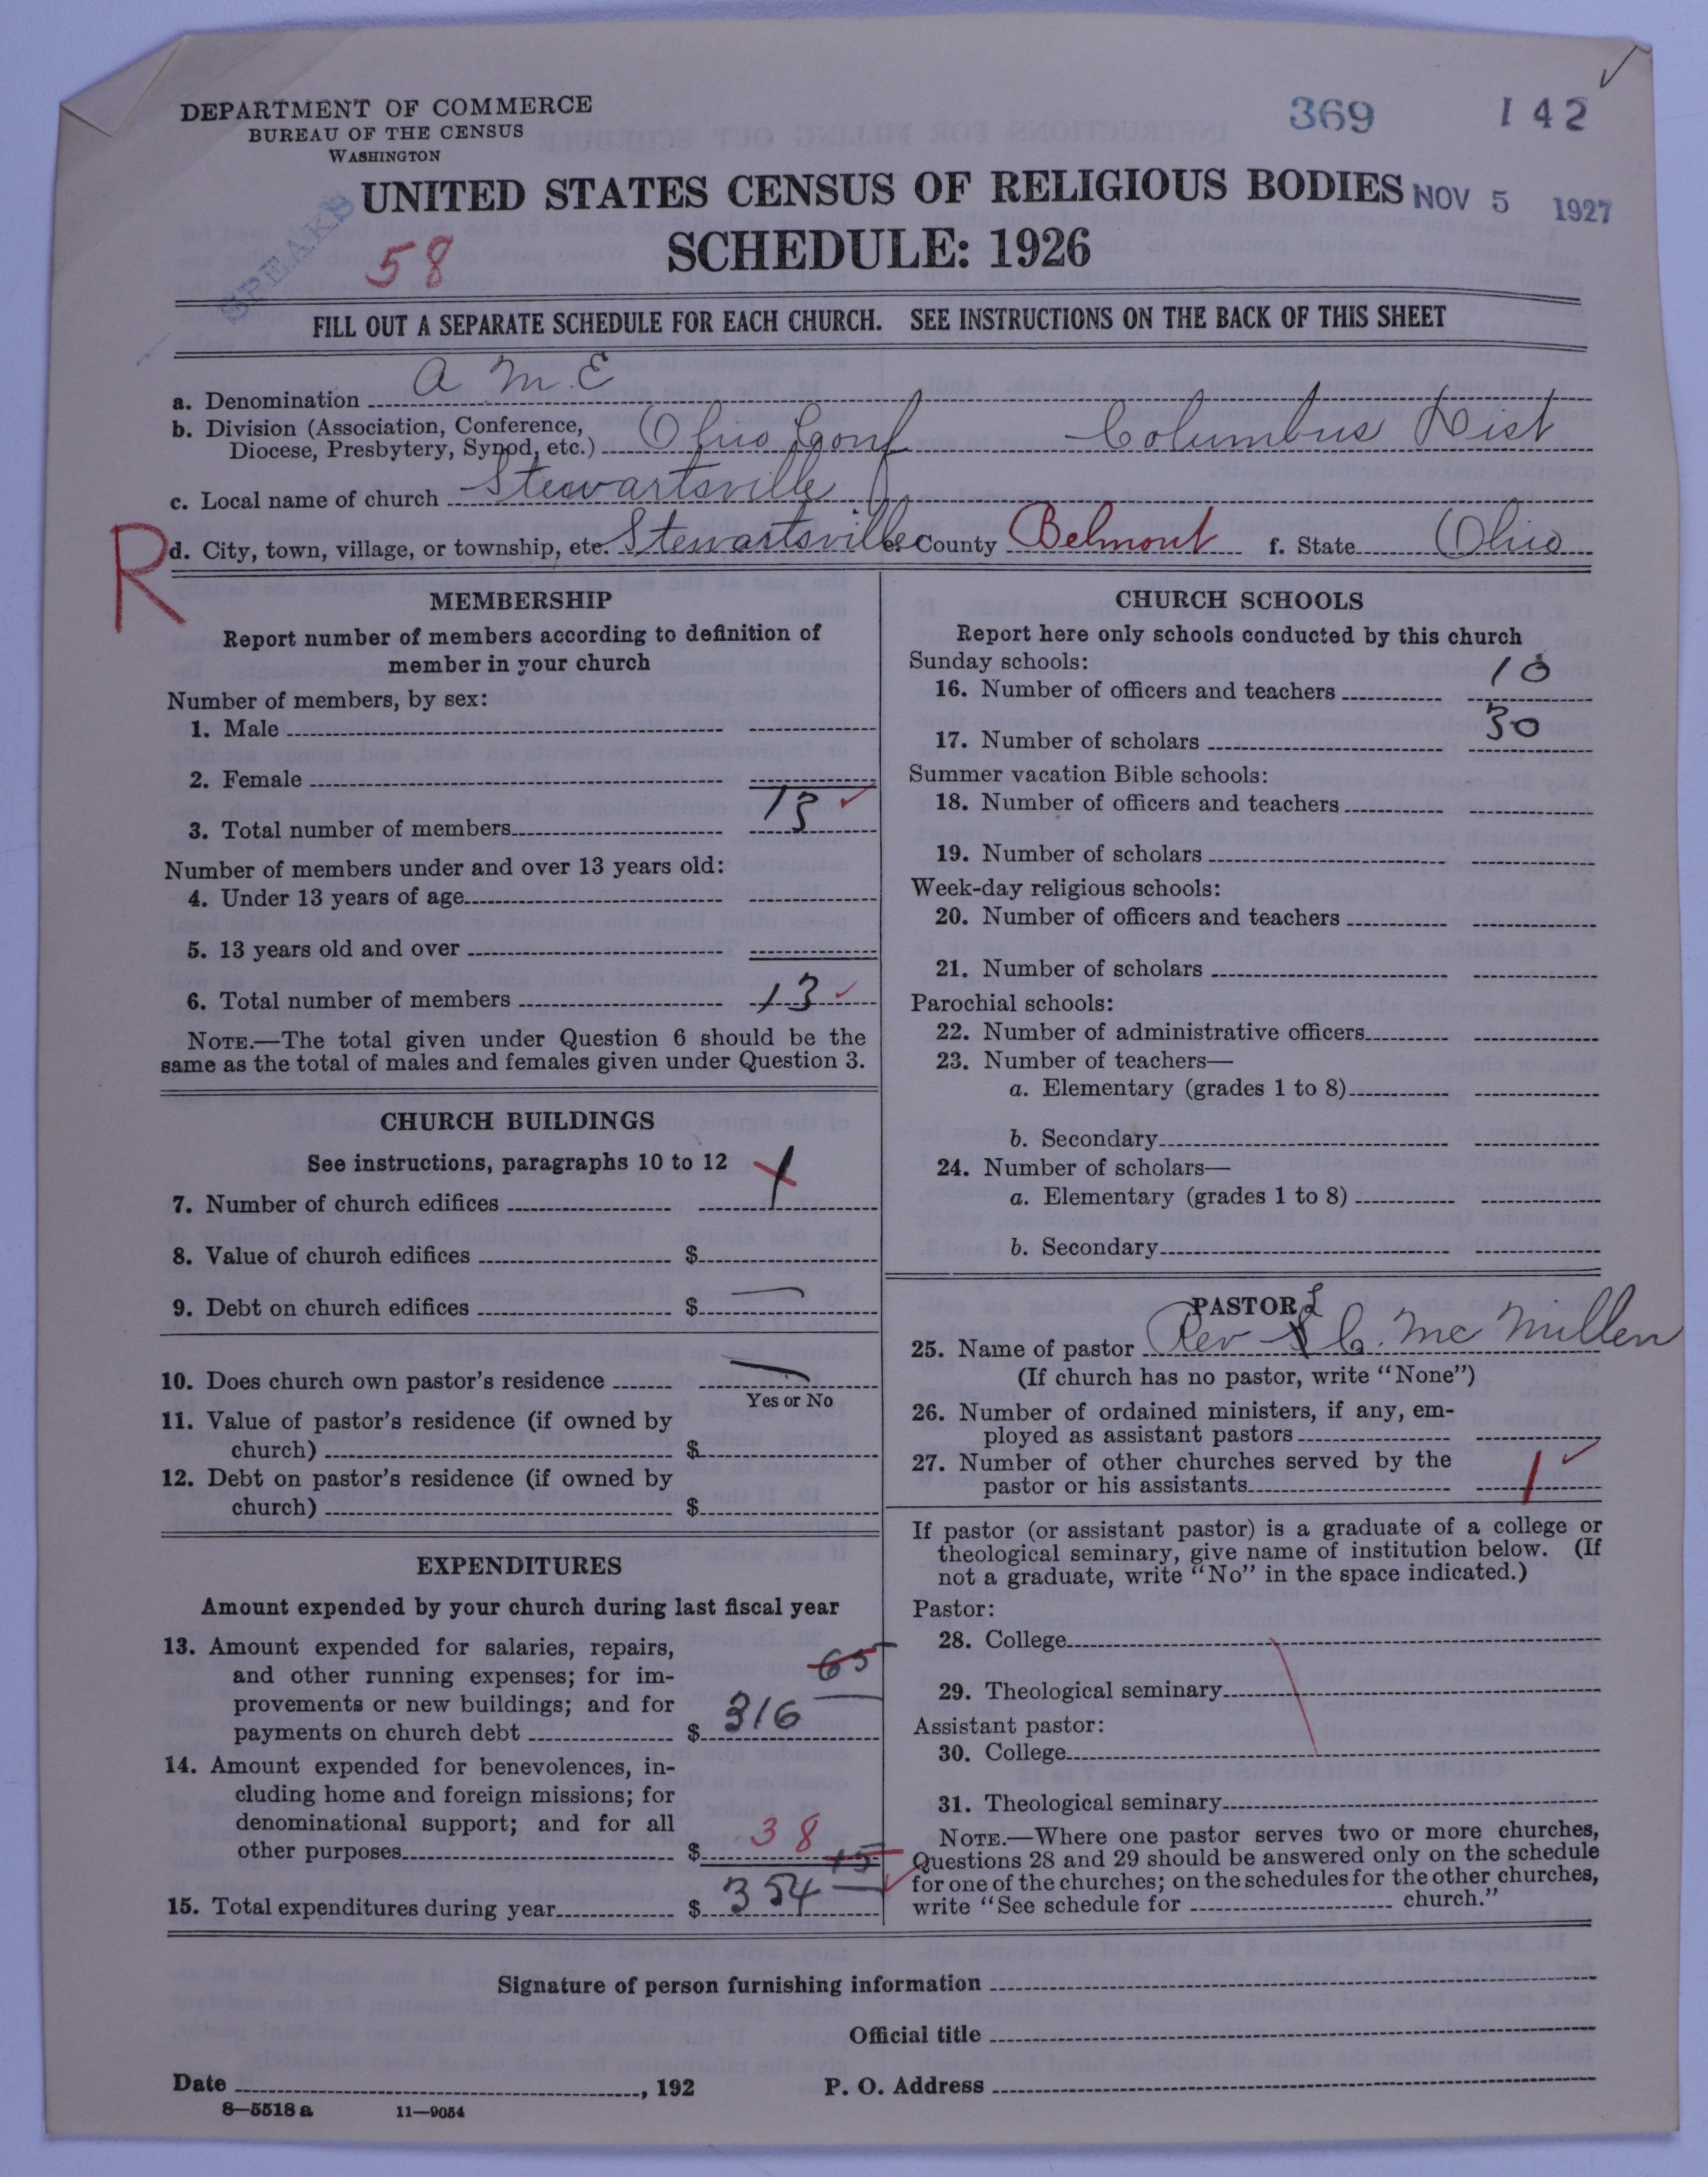 DEPARTMENT OF COMMERCE
BUREAU OF THE CENSUS
WASHINGTON
369 142
UNITED STATES CENSUS OF RELIGIOUS BODIES
NOV 5 1927
SPEAKS
58
SCHEDULE: 1926
FILL OUT A SEPARATE SCHEDULE FOR EACH CHURCH. SEE INSTRUCTIONS ON THE BACK OF THIS SHEET
a. Denomination A. M. E
b. Division (Association, Conference,
Diocese, Presbytery, Synod, etc.) Ohio Conf Columbus Dist
c. Local name of church Stewartsville
R
d. City, town, village, or township, etc. Stewartsville e. County Belmont f. State Ohio
MEMBERSHIP
Report number of members according to definition of
member in your church
Number of members, by sex:
1. Male
2. Female
3. Total number of members 13
Number of members under and over 13 years old:
4. Under 13 years of age
5. 13 years old and over
6. Total number of members 13
NOTE.—The total given under Question 6 should be the
same as the total of males and females given under Question 3.
CHURCH BUILDINGS
See instructions, paragraphs 10 to 12
7. Number of church edifices 1
8. Value of church edifices $
9. Debt on church edifices $ —
10. Does church own pastor's residence —
Yes or No
11. Value of pastor's residence (if owned by
church) $
12. Debt on pastor's residence (if owned by
church) $
EXPENDITURES
Amount expended by your church during last fiscal year
13. Amount expended for salaries, repairs,
and other running expenses; for im-
provements or new buildings; and for
payments on church debt $ 65 316
14. Amount expended for benevolences, in-
cluding home and foreign missions; for
denominational support; and for all
other purposes $ 38 15
15. Total expenditures during year $ 354
CHURCH SCHOOLS
Report here only schools conducted by this church
Sunday schools:
16. Number of officers and teachers 10
17. Number of scholars 30
Summer vacation Bible schools:
18. Number of officers and teachers
19. Number of scholars
Week-day religious schools:
20. Number of officers and teachers
21. Number of scholars
Parochial schools:
22. Number of administrative officers
23. Number of teachers—
a. Elementary (grades 1 to 8)
b. Secondary
24. Number of scholars—
a. Elementary (grades 1 to 8)
b. Secondary
PASTOR
25. Name of pastor Rev L C. McMillen
(If church has no pastor, write "None")
26. Number of ordained ministers, if any, em-
ployed as assistant pastors
27. Number of other churches served by the
pastor or his assistants 1
If pastor (or assistant pastor) is a graduate of a college or
theological seminary, give name of institution below. (If
not a graduate, write "No" in the space indicated.)
Pastor:
28. College
29. Theological seminary
Assistant pastor:
30. College
31. Theological seminary
NOTE.—Where one pastor serves two or more churches,
Questions 28 and 29 should be answered only on the schedule
for one of the churches; on the schedules for the other churches,
write "See schedule for church."
Signature of person furnishing information
Official title
Date , 192 P. O. Address
8—5518 a 11—9054